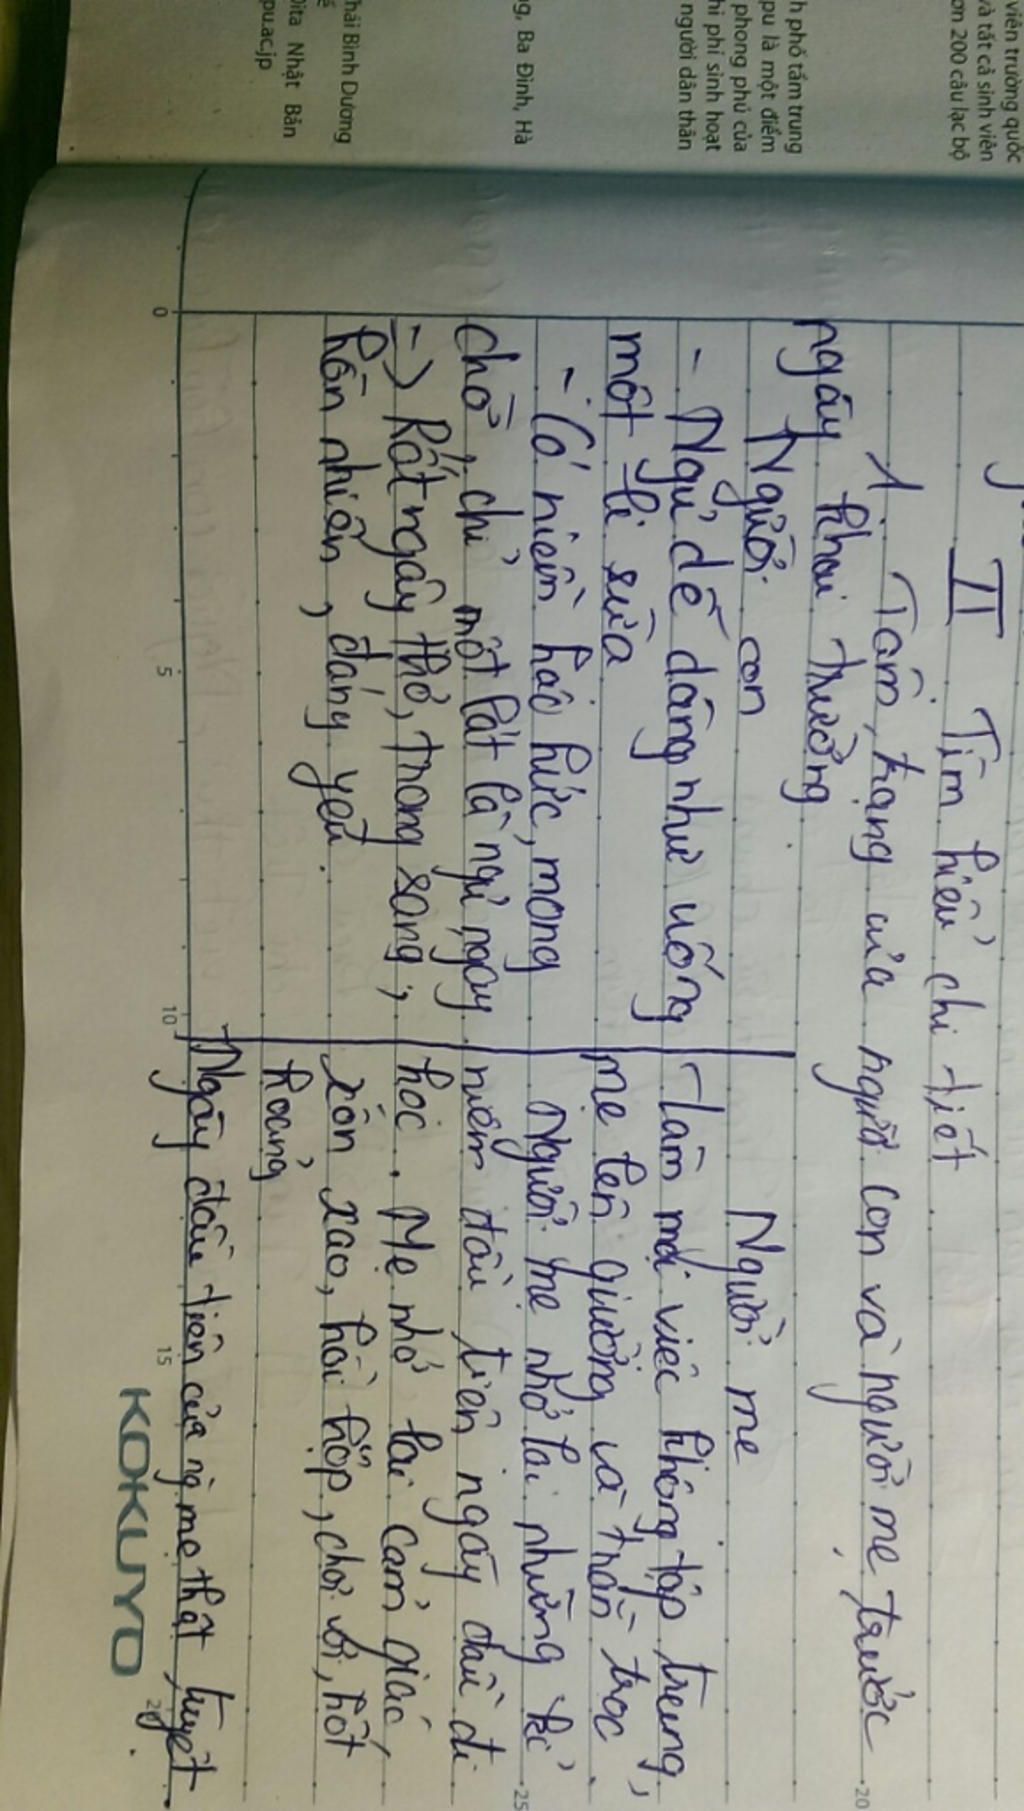 viên trường quốc
và tất cả sinh viên
ơn 200 câu lạc bộ
h phố tấm trung
pu là một điểm
phong phú của
hi phí sinh hoạt
người dân thân
g, Ba Đình, Hà
hái Bình Dương
ế
Oita Nhật Bản
pu.ac.jp
II Tìm hiểu chi tiết
1 Tâm trạng của người con và người mẹ trước
ngày khai trường
Người con
- Ngủ dễ dàng như uống
một li sữa
- Có niềm háo hức, mong
chờ, chỉ một lát là ngủ ngay
-> Rất ngây thơ, trong sáng,
hồn nhiên, đáng yêu.
Người mẹ
- Làm mọi việc không tập trung,
mẹ lên giường và trằn trọc.
Người mẹ nhớ lại những kỉ
niệm đầu tiên ngày đầu đi
học. Mẹ nhớ lại cảm giác,
xôn xao, hồi hộp, chơi vơi, hốt
hoảng
Ngày đầu tiên của ng mẹ thật tuyệt
0 5 10 15 20
20
25
KOKUYO